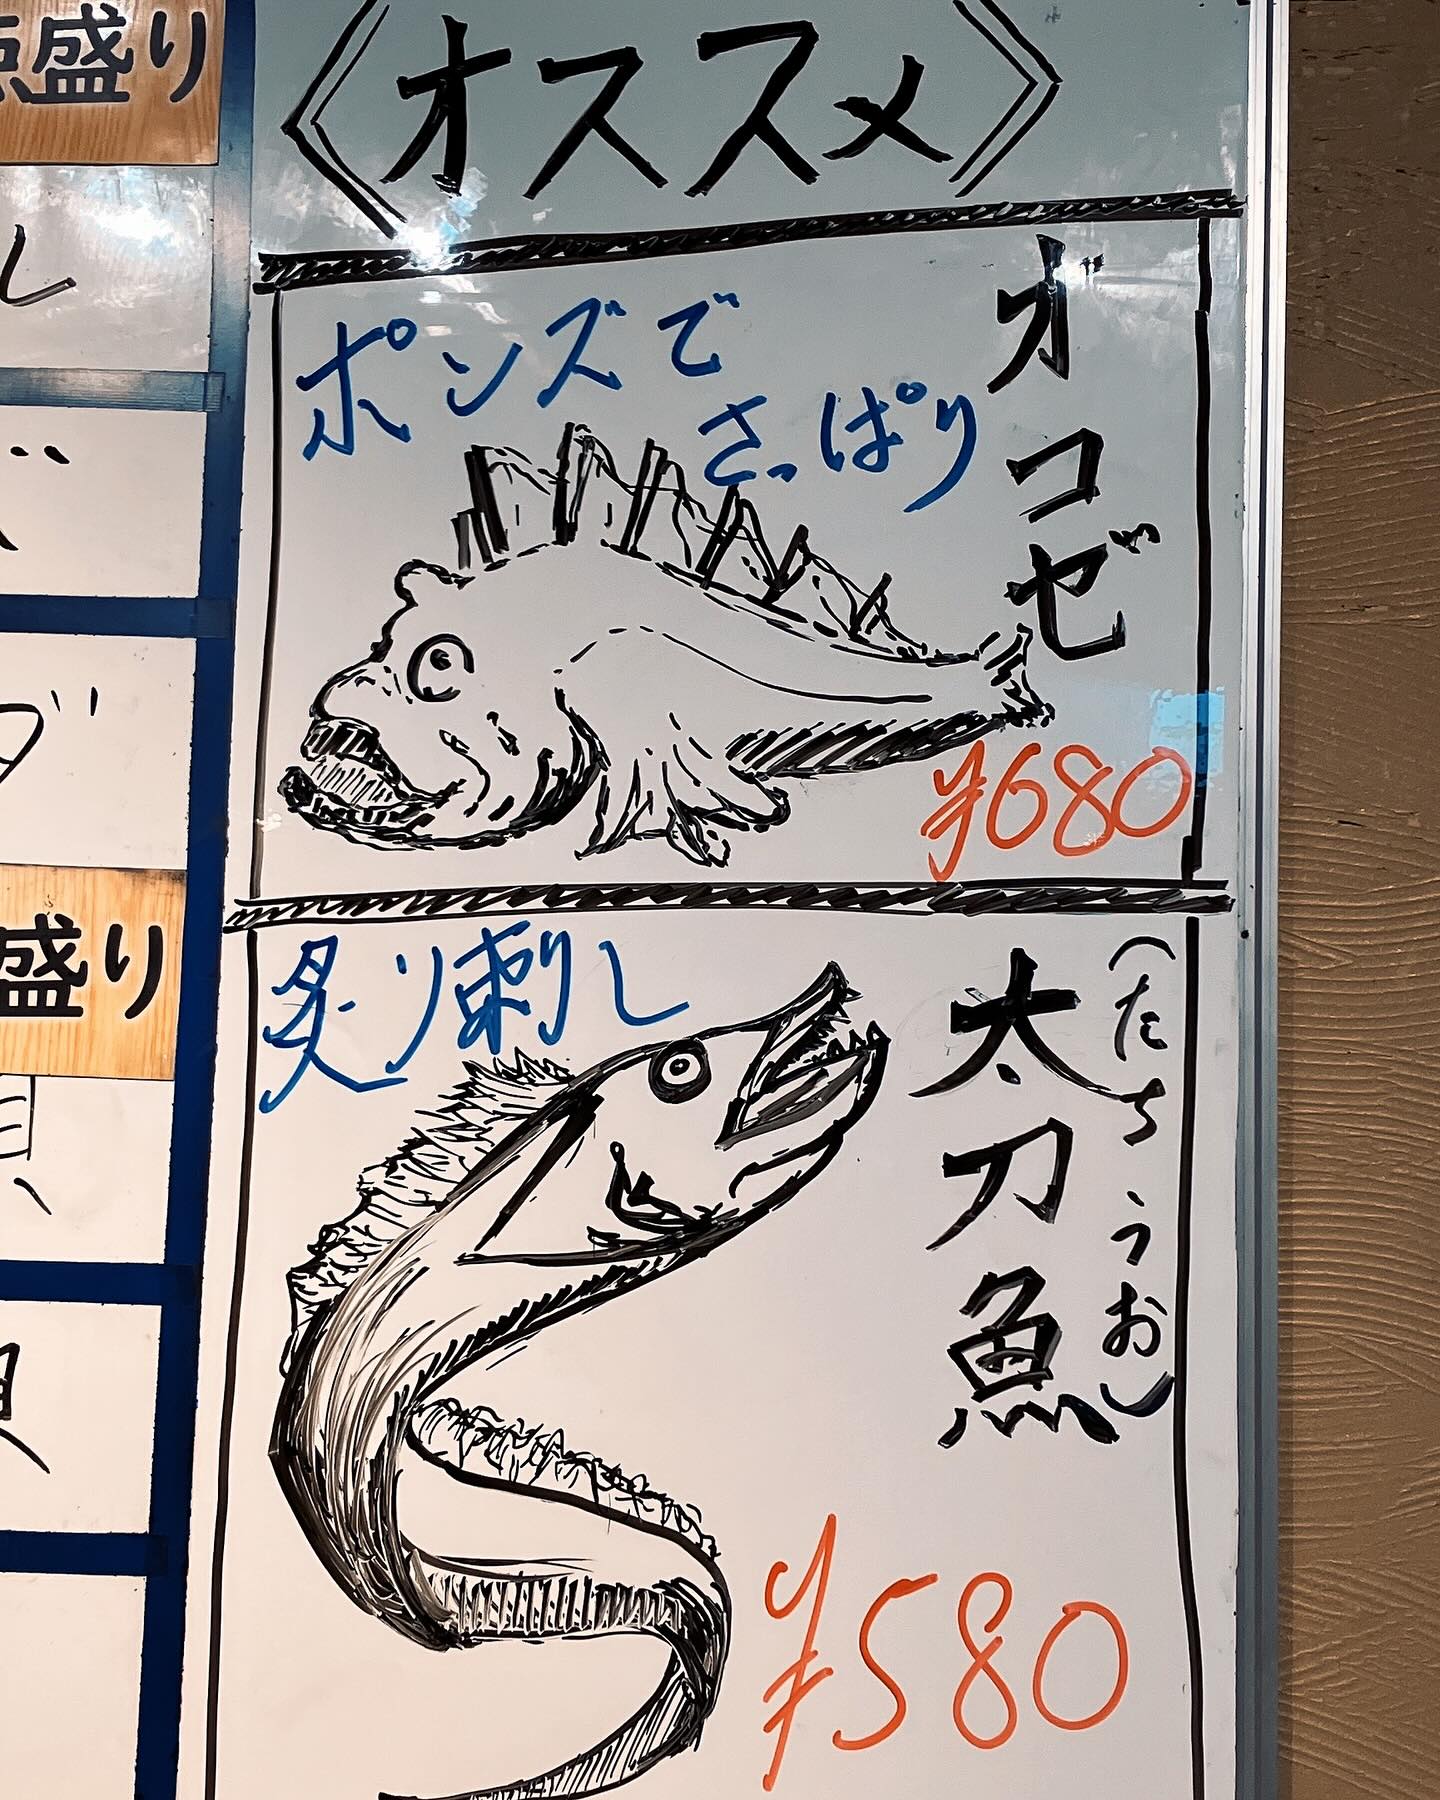 〈オススメ〉
オコゼ
ポンズで
さっぱり
¥680
太刀魚
(たちうお)
炙り刺し
¥580
盛り
し
ダ
盛り